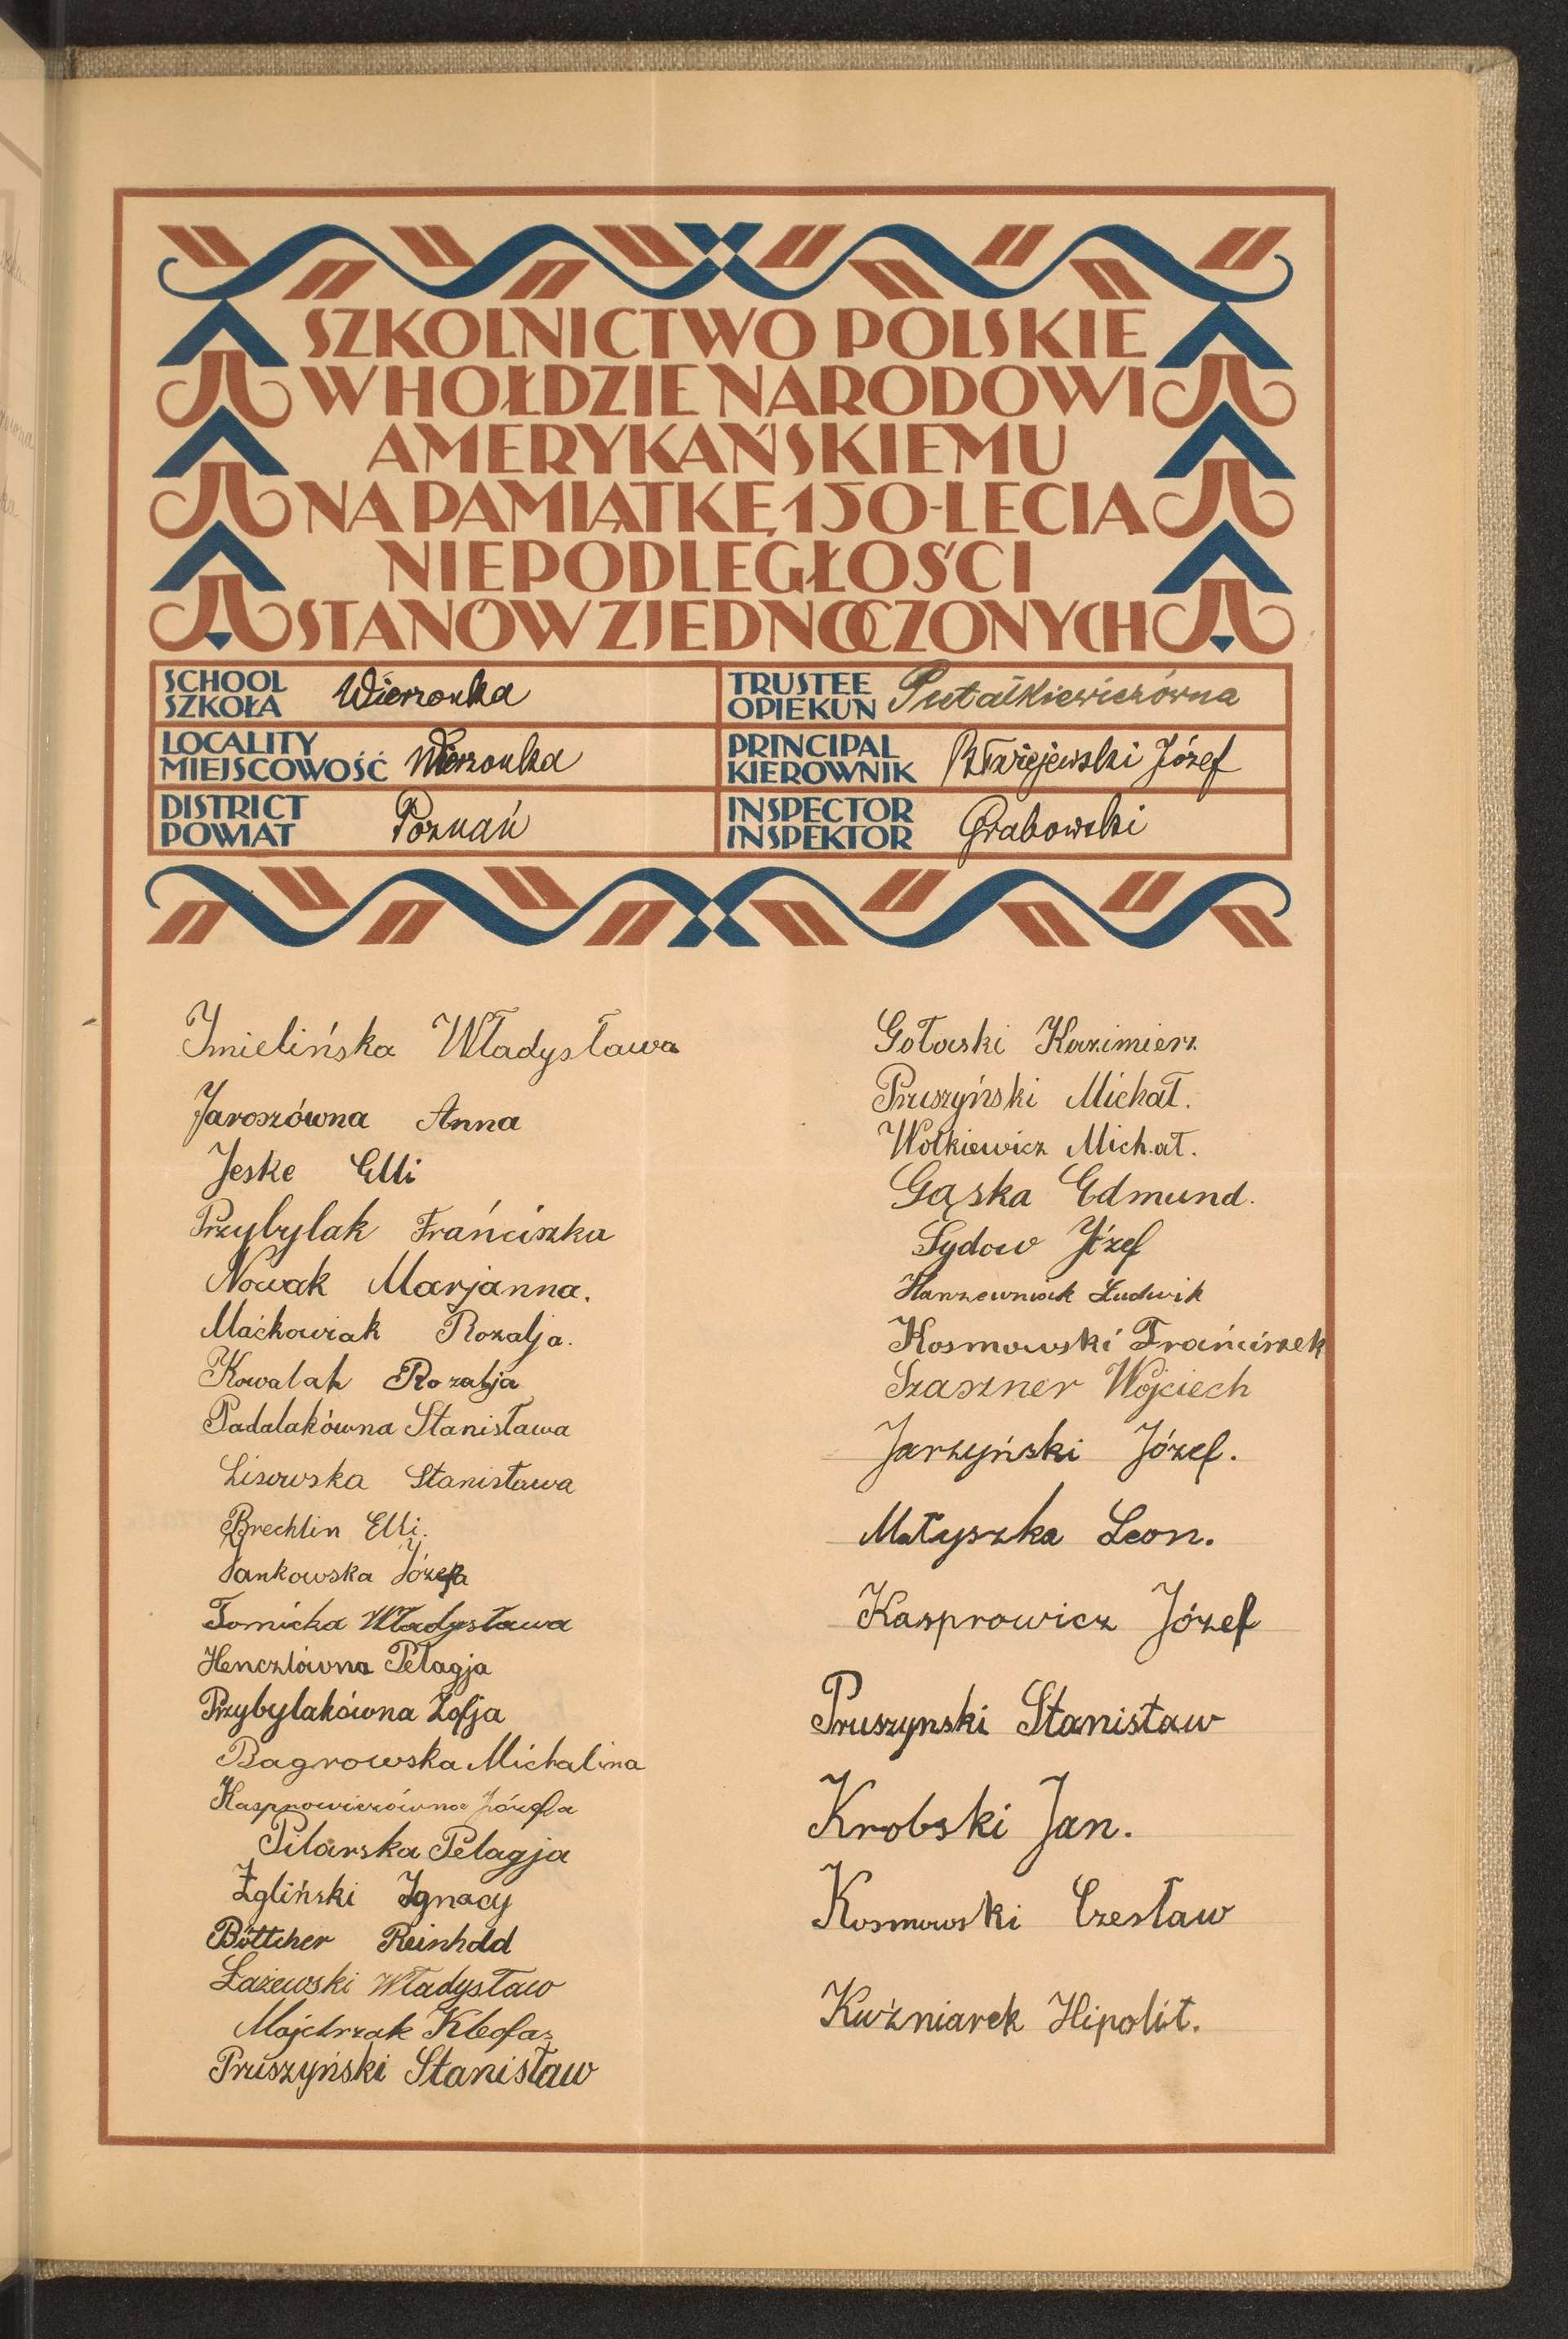 SZKOLNICTWO POLSKIE
W HOŁDZIE NARODOWI
AMERYKAŃSKIEMU
NA PAMIĄTKĘ 150-LECIA
NIEPODLEGŁOŚCI
STANÓW ZJEDNOCZONYCH
SCHOOL
SZKOŁA Wierzonka
TRUSTEE
OPIEKUN Putałkiewiczówna
LOCALITY
MIEJSCOWOŚĆ Wierzonka
PRINCIPAL
KIEROWNIK Błażejewski Józef
DISTRICT
POWIAT Poznań
INSPECTOR
INSPEKTOR Grabowski
Imielińska Władysława
Jaroszówna Anna
Jeske Elli
Przybylak Frańciszka
Nowak Marjanna.
Maćkowiak Rozalja.
Kowalak Rozalja
Padalakówna Stanisława
Lisowska Stanisława
Brechlin Elli.
Jankowska Józefa
Tomicka Władysława
Henczlówna Pelagja
Przybylakówna Zofja
Bagrowska Michalina
Kasprowiczówna Józefa
Pilarska Pelagja
Żgliński Ignacy
Böttcher Reinhold
Łażewski Władysław
Majchrzak Kleofas
Pruszyński Stanisław
Gołaski Kazimierz
Pruszyński Michał.
Wołkiewicz Michał.
Gąska Edmund.
Sydow Józef
Hanzewniak Ludwik
Kosmowski Frańciszek
Szaszner Wojciech
Jarzyński Józef.
Matyszka Leon.
Kasprowicz Józef
Pruszynski Stanisław
Krobski Jan.
Kosmowski Czesław
Kuźniarek Hipolit.